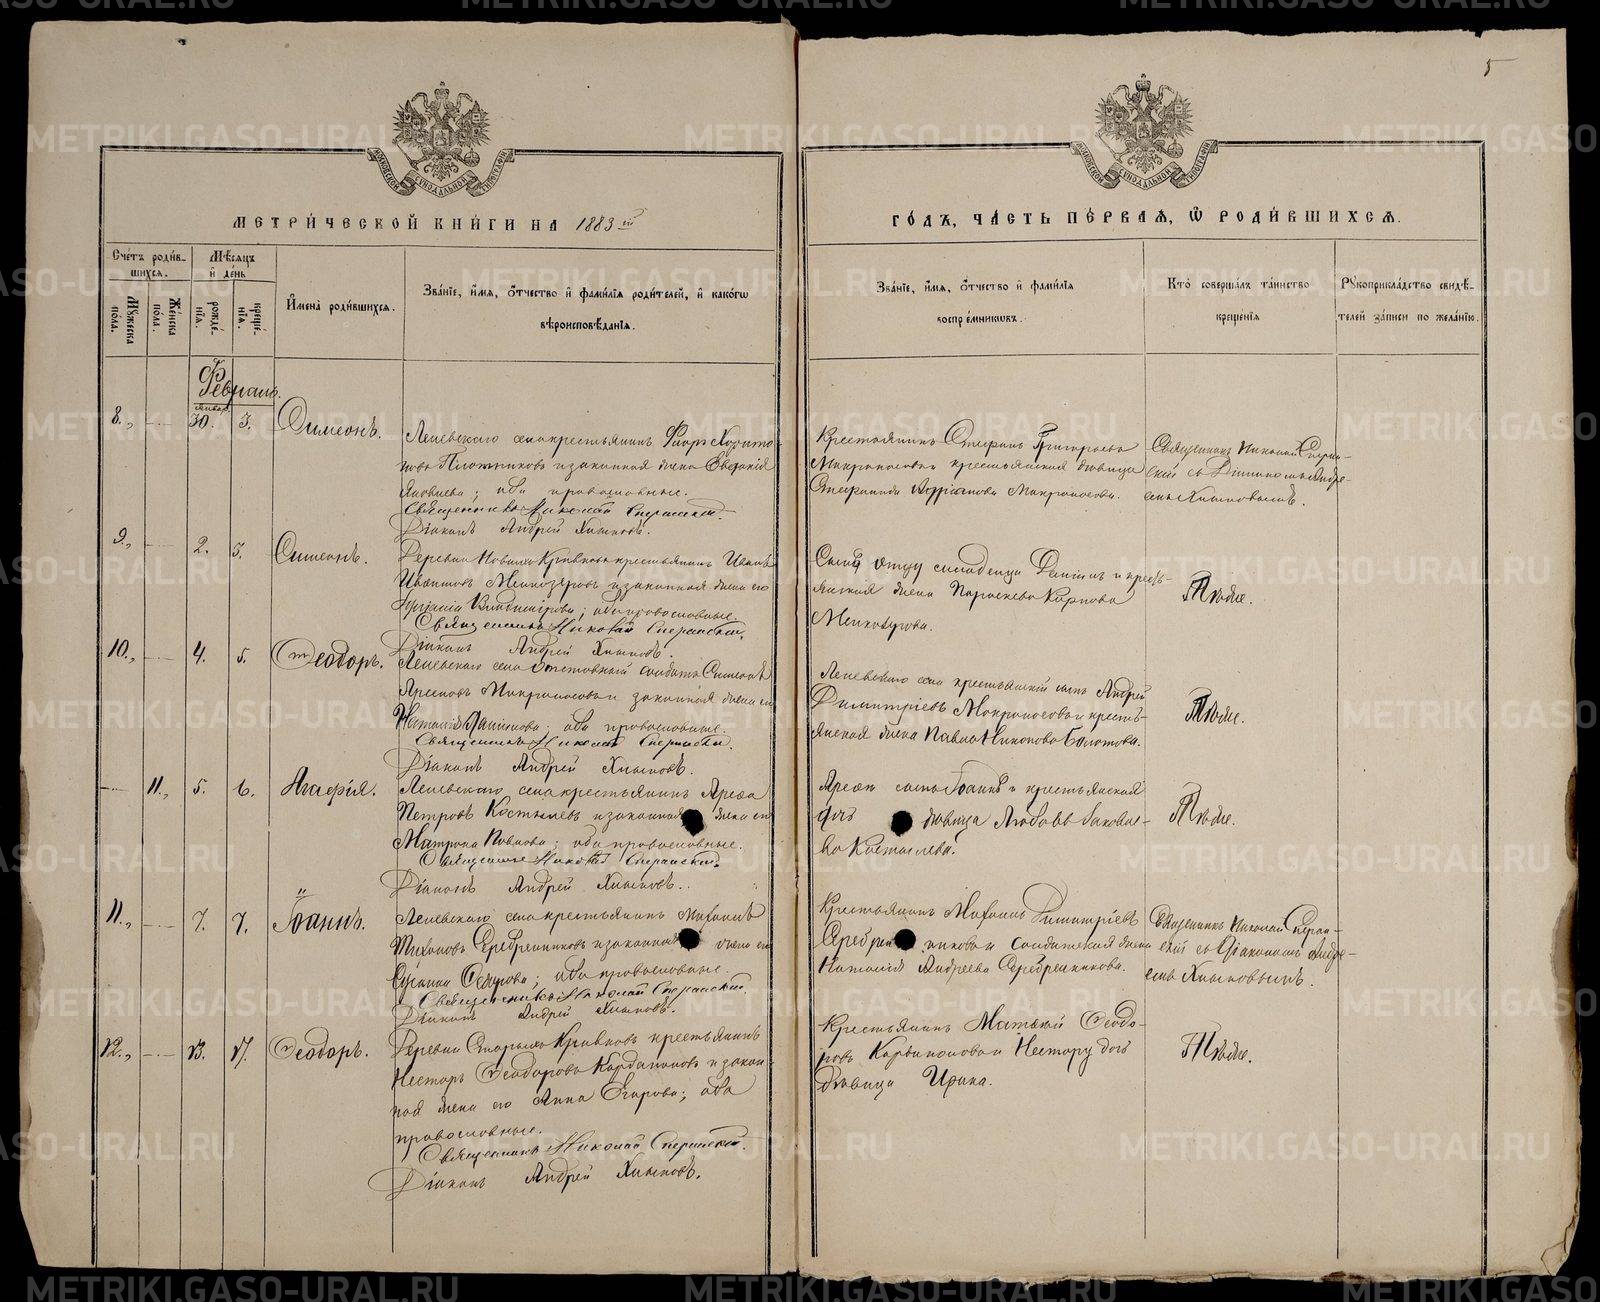 5
МОСКОВСКОЙ СѴНОДАЛЬНОЙ ТИПОГРАФІИ
МОСКОВСКОЙ СѴНОДАЛЬНОЙ ТИПОГРАФІИ
МЕТРИ́ЧЕСКОЙ КНИ́ГИ НА 1883 й
ГО́ДЪ, ЧА́СТЬ ПЕ́РВАЯ, Ѿ РОДИ́ВШИХСЯ.
Сче́тъ роди́в-
шихся.
Мѣ́сяцъ
и҆ де́нь
Мꙋ́жеска по́ла.
Же́нска по́ла.
рожде́-
нїѧ.
креще́-
нїѧ.
И҆мена̀ роди́вшихся.
Зва́нїе, и҆́мѧ, ѻ҆́тчество и҆ фами́лїѧ роди́телей, и҆ како́гѡ
вѣроисповѣ́данїѧ.
Зва́нїе, и҆́мѧ, ѻ҆́тчество и҆ фами́лїѧ
воспрїе́мникѡвъ.
Кто̀ соверша́лъ та́инство
креще́нїѧ
Рꙋкоприкла́дство свидѣ́-
телей за́писи по жела́нїю.
Февраль.
Январ.
8., 30. 3. Симеонъ.
Леневскаго села крестьянинъ Флоръ Харито-
новъ Плотниковъ и законная жена Евдокія
Яковлева; оба православные.
Священникъ Николай Сперанскій.
Діаконъ Андрей Хлыновъ.
Крестьянинъ Стефанъ Григорьевъ
Макроносовъ и крестьянская дѣвица
Стефанида Макроносова.
Священникъ Николай Сперан-
скій съ Діакономъ Андре-
емъ Хлыновымъ.
9., 2. 3. Симеонъ.
Деревни Новыхъ Кривковъ крестьянинъ Иванъ
Мелкозеровъ и законная жена его
Владимірова; оба православные.
Священникъ Николай Сперанскій.
Діаконъ Андрей Хлыновъ.
Сынъ отцу младенца Даніилъ и кресть-
янская жена Параскева Карпова
Мелкозерова.
Тѣже.
10., 4. 5. Ѳеодоръ.
Леневскаго села отставный солдатъ Симеонъ
Макроносовъ и законная жена его
Наталія Данилова; оба православные.
Священникъ Николай Сперанскій.
Діаконъ Андрей Хлыновъ.
Леневскаго села крестьянскій сынъ Андрей
Димитріевъ Макроносовъ и кресть-
янская жена Павла Никонова Болотова.
Тѣже.
11., 5. 6. Агафія.
Леневскаго села крестьянинъ Арефа
Петровъ Костылевъ и законная жена его
Матрона Павлова; оба православные.
Священникъ Николай Сперанскій.
Діаконъ Андрей Хлыновъ.
Арефы сынъ Іоаннъ и крестьянская
дочь дѣвица Любовь Іаковле-
ва Костылева.
Тѣже.
11., 7. 7. Іоаннъ.
Леневскаго села крестьянинъ Михаилъ
Тихоновъ Серебренниковъ и законная жена его
оба православные.
Священникъ Николай Сперанскій.
Діаконъ Андрей Хлыновъ.
Крестьянинъ Михаилъ Димитріевъ
Серебренниковъ и солдатская жена
Наталія Андреева Серебренникова.
Священникъ Николай Сперан-
скій съ Діакономъ Андре-
емъ Хлыновымъ.
12., 13. 17. Ѳеодоръ.
Деревни Старыхъ Кривковъ крестьянинъ
Несторъ Ѳеодоровъ и закон-
ная жена его Анна Егорова; оба
православные.
Священникъ Николай Сперанскій.
Діаконъ Андрей Хлыновъ.
Крестьянинъ Матѳей Ѳеодо-
ровъ и Нестору дочь
дѣвица Ирина.
Тѣже.
METRIKI.GASO-URAL.RU